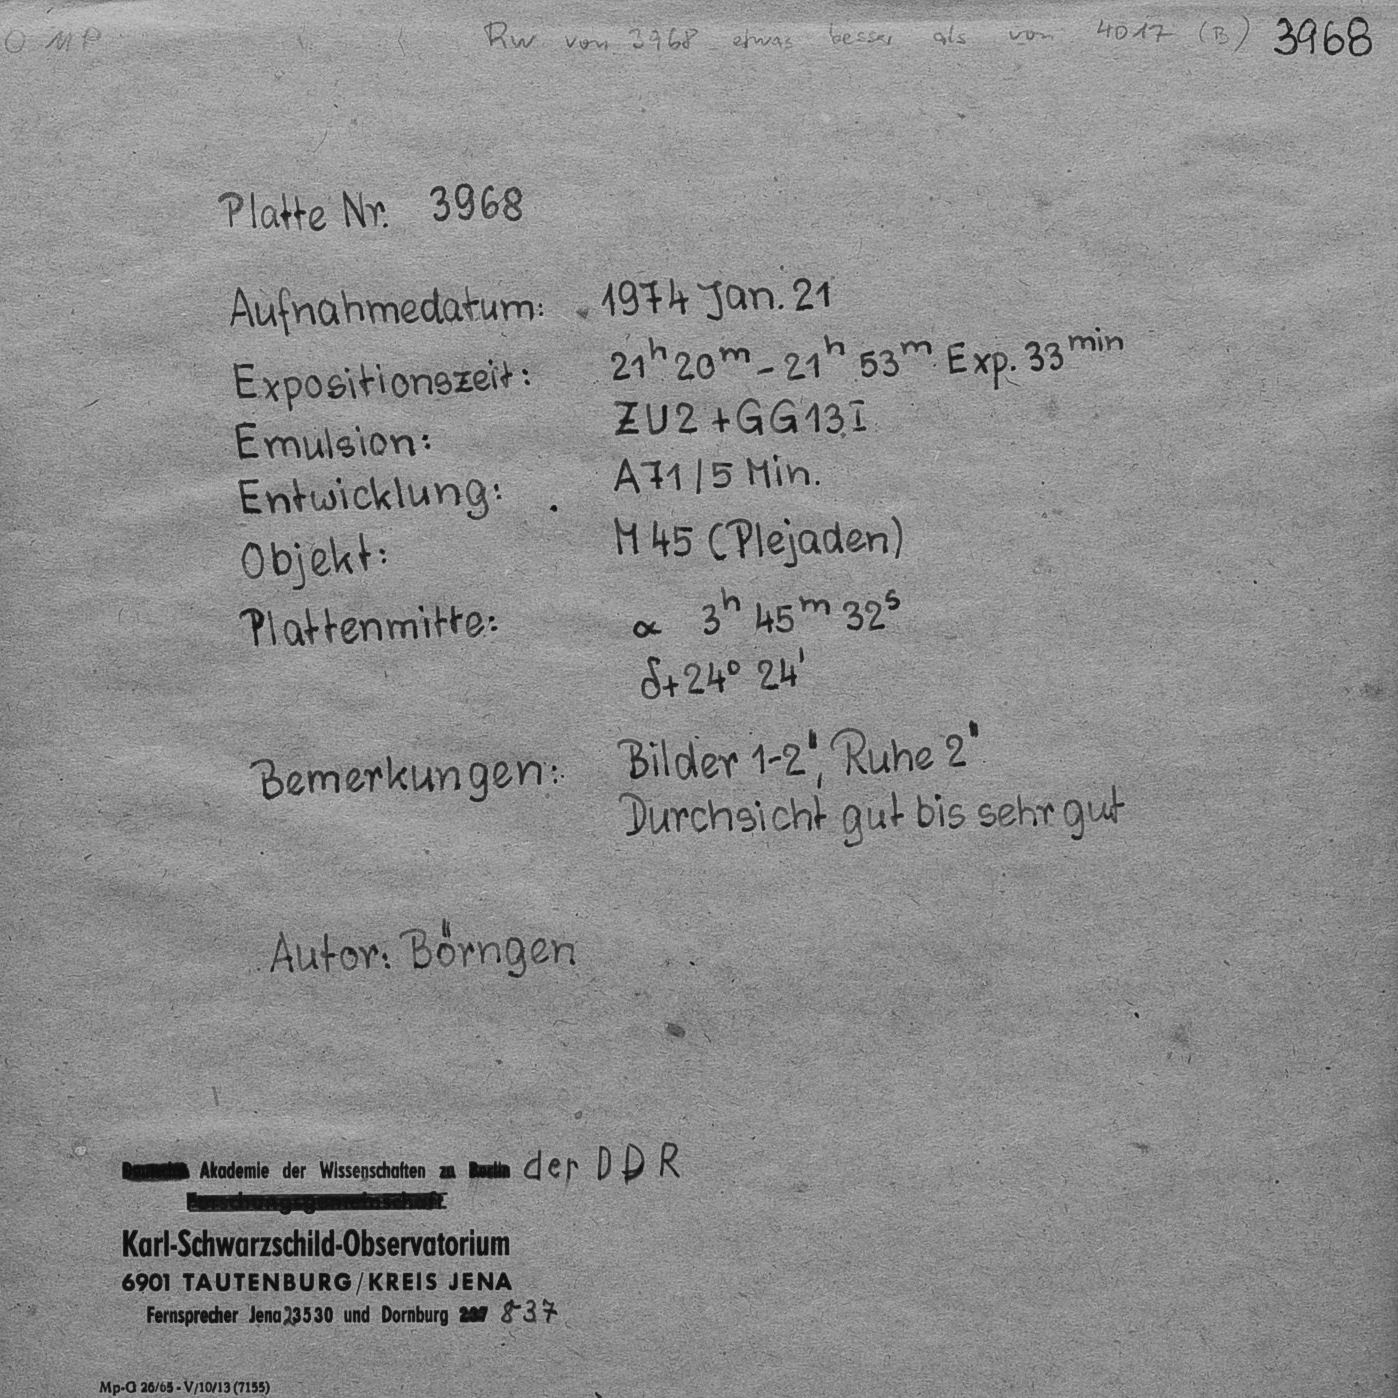 O MP Rw von 3968 etwas besser als von 4017 (B) 3968
Platte Nr. 3968
Aufnahmedatum: 1974 Jan. 21
Expositionszeit: 21h 20m - 21h 53m Exp. 33min
Emulsion: ZU2 + GG13 I
Entwicklung: A71 / 5 Min.
Objekt: M 45 (Plejaden)
Plattenmitte: α 3h 45m 32s
δ + 24° 24'
Bemerkungen: Bilder 1-2", Ruhe 2"
Durchsicht gut bis sehr gut
Autor: Börngen
Akademie der Wissenschaften der DDR
Karl-Schwarzschild-Observatorium
6901 TAUTENBURG/KREIS JENA
Fernsprecher Jena 23530 und Dornburg 837
Mp-G 26/65 - V/10/13 (7155)